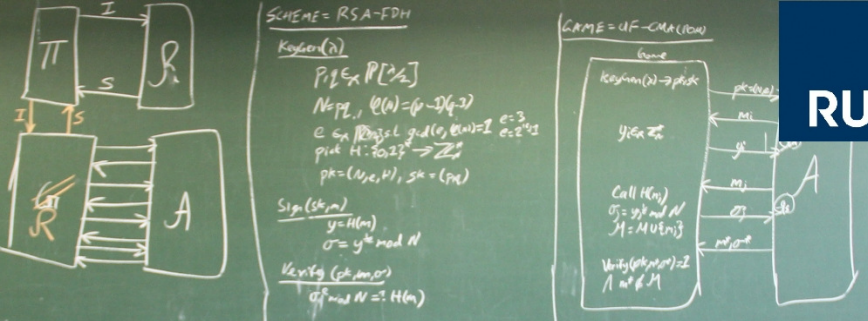 I
Π
R
S
I
S
R
A
SCHEME = RSA-FDH
KeyGen(λ)
p,q ∈R P[λ/2]
N=pq, φ(N)=(p-1)(q-1)
gcd(e,φ(N))=1 e=3
pick H:{0,1}* → Z*N
pk=(N,e,H), sk=(p,q)
Sign(sk,m)
y=H(m)
σ= mod N
Verify(pk,m,σ)
σ^e mod N =? H(m)
GAME = UF-CMA(ROM)
Game
KeyGen(λ)→pk,sk
mi
yi ∈R Z*N
yi
A
mj
Call H(mj)
σj = mod N
σj
M = M∪{mj}
m*,σ*
Verify(pk,m*,σ*)=1
∧ m* ∉ M
RU